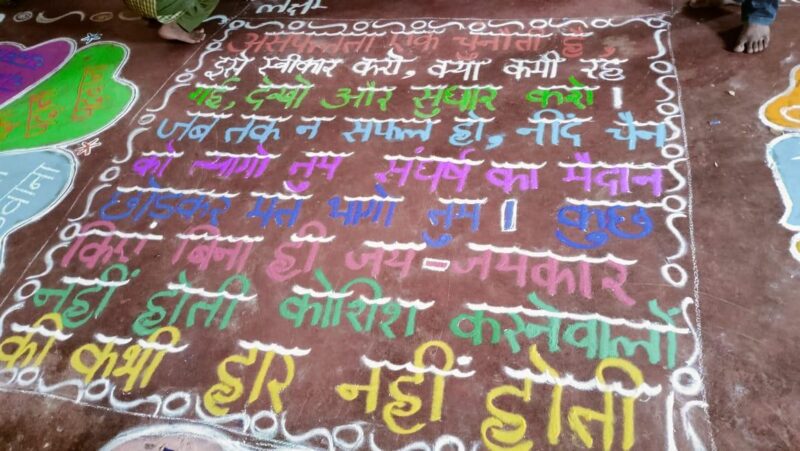 असफलता एक चुनौती है,
इसे स्वीकार करो, क्या कमी रह
गई, देखो और सुधार करो ।
जब तक न सफल हो, नींद चैन
को त्यागो तुम संघर्ष का मैदान
छोडकर मत भागो तुम । कुछ
किए बिना ही जय-जयकार
नहीं होती कोशिश करनेवालों
की कभी हार नहीं होती